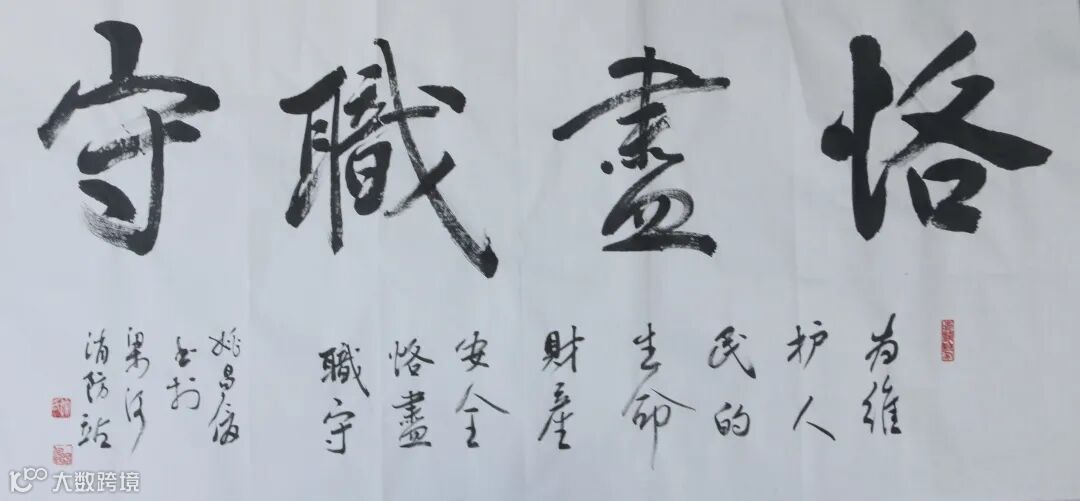 恪盡職守
为維
护人
民的
生命
財產
安全
恪盡
職守
姚昌
书於
梁河
消防站
大数跨境